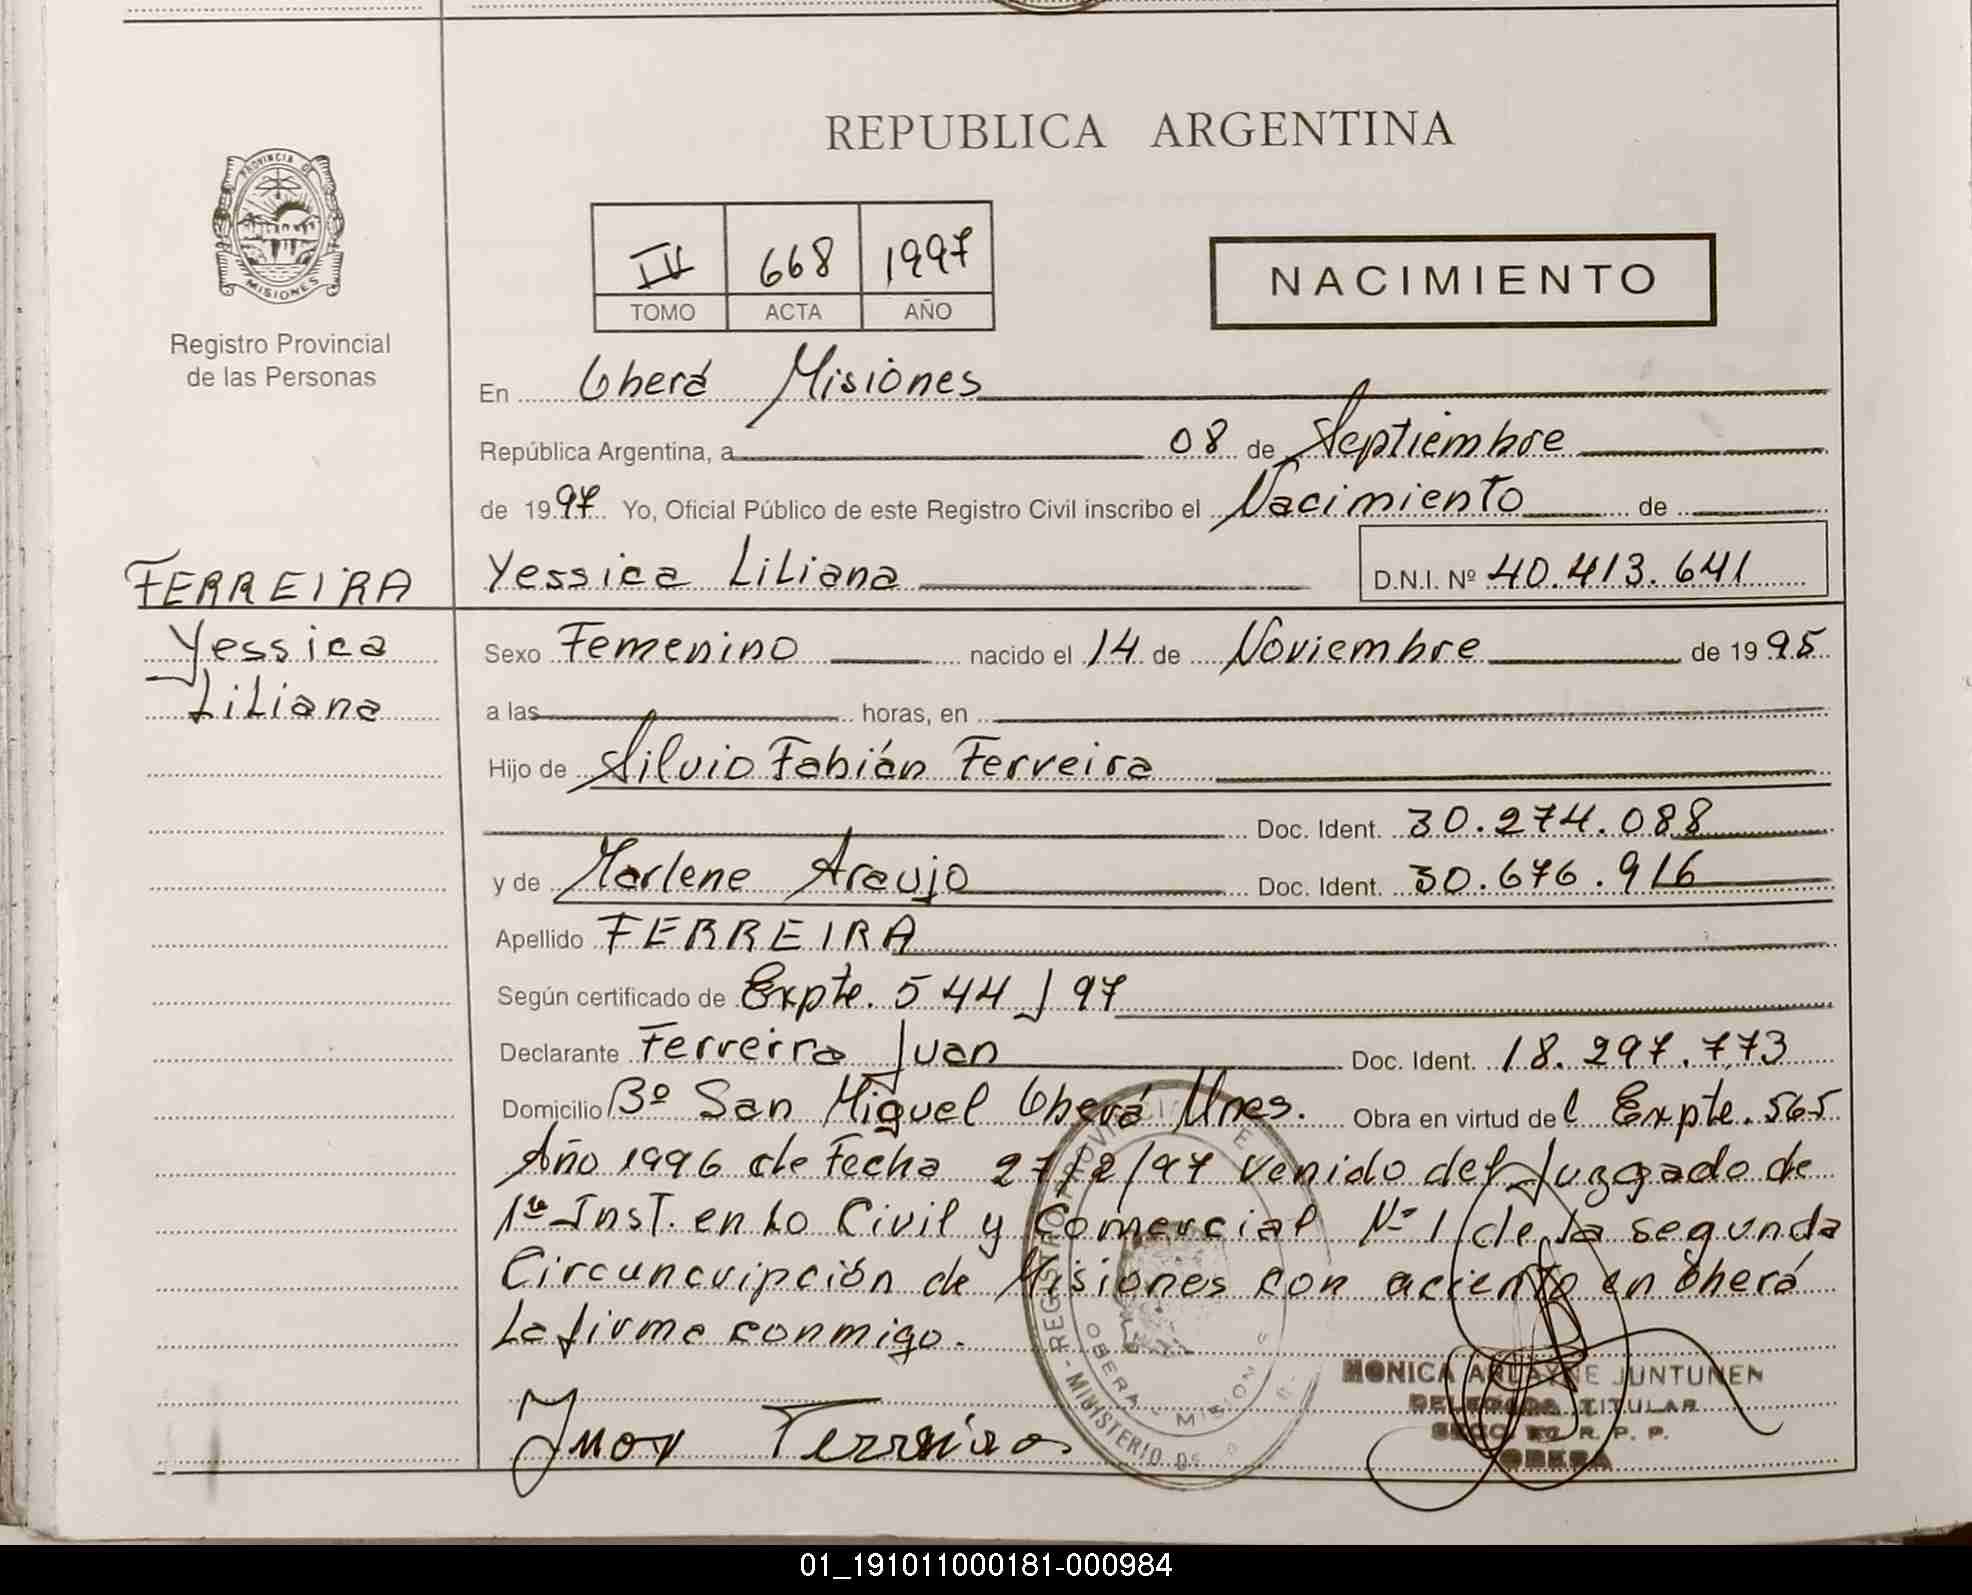 REPUBLICA ARGENTINA
PROVINCIA DE
MISIONES
Registro Provincial
de las Personas
IV 668 1997
TOMO ACTA AÑO
NACIMIENTO
En Oberá Misiones
República Argentina, a 08 de Septiembre
de 1997 Yo, Oficial Público de este Registro Civil inscribo el Nacimiento de
Yessica Liliana D.N.I. Nº 40.413.641
FERREIRA
Yessica
Liliana
Sexo Femenino nacido el 14 de Noviembre de 1995
a las horas, en
Hijo de Silvio Fabián Ferreira
Doc. Ident. 30.274.088
y de Marlene Araujo Doc. Ident. 30.676.916
Apellido FERREIRA
Según certificado de Expte. 544/97
Declarante Ferreira Juan Doc. Ident. 18.297.773
Domicilio Bº San Miguel Oberá Mnes. Obra en virtud del Expte. 565
Año 1996 de Fecha 27/2/97 venido del Juzgado de
1ª Inst. en Lo Civil y Comercial Nº 1 de la segunda
Circuncripción de Misiones con aciento en Oberá
La firma conmigo.
Juan Ferreira
REGISTRO PROVINCI DE
MINISTERIO DE
OBERA - MISION
MONICA ARLAYNE JUNTUNEN
DELEGADA TITULAR
R. P. P.
OBERA
01_191011000181-000984